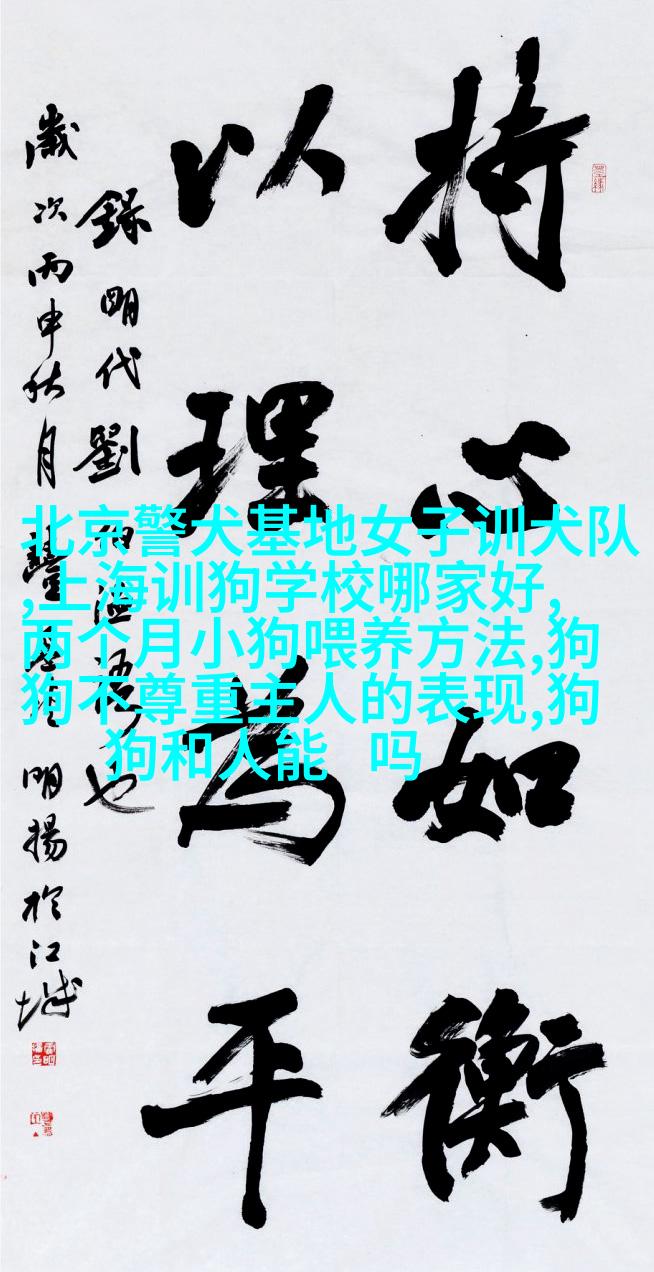 持心如衡
以理为平
錄明代劉伯温語也
歲次丙申秋月
明揚於江城
北京警犬基地女子训犬队
,上海训狗学校哪家好,
两个月小狗喂养方法,狗
狗不尊重主人的表现,狗
狗和人能 吗